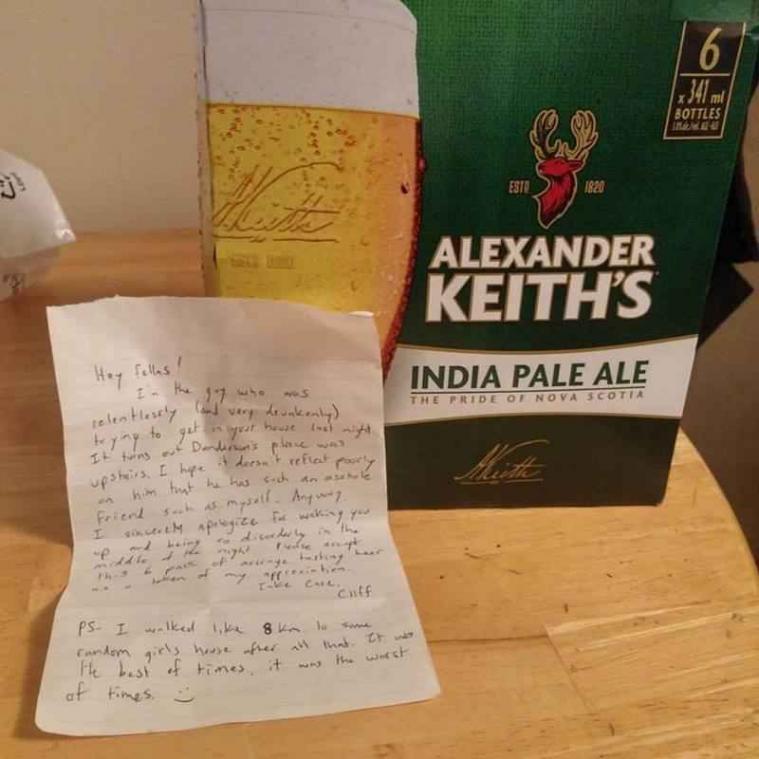 6
x 341 ml
BOTTLES
Keith
ESTD 1820
ALEXANDER
KEITH'S
INDIA PALE ALE
THE PRIDE OF NOVA SCOTIA
AKeith
Hey Fellas!
I'm the guy who was
relentlessly (and very drunkenly)
trying to get in your house last night.
It turns out Danderson's place was
upstairs. I hope it doesn't reflect poorly
on him that he has such an asshole
friend such as myself. Anyway
I sincerely apologize for waking you
up and being so disorderly in the
middle of the night. Please accept
this 6 pack of average tasting beer
as a token of my appreciation.
Take Care,
Cliff
PS- I walked like 8 km to some
random girls house after all that. It was
the best of times, it was the worst
of times. :)